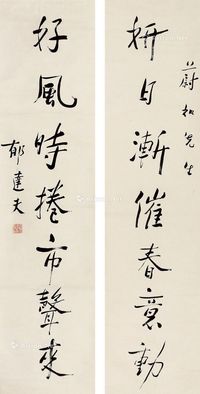 蔚如先生
漸催春意動
好風時捲市聲來
郁達夫